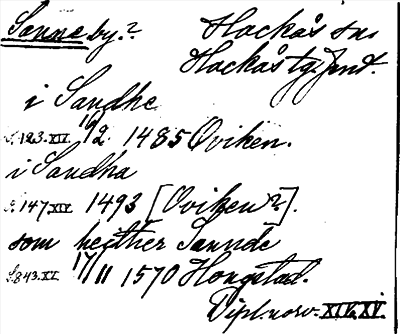 Sanne by.? Hackås sn.
Hackås tg. Jämt.
i Sandhe
S. 123. XIV. 16/2 1485 Oviken.
i Sandha
S. 147. XIV 1493 [Oviken?].
som heither Sannde
S. 843. XV 17/11 1570 Hongstad.
Dipl. norv. XIV, XV.